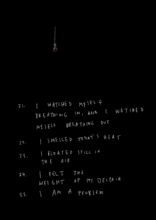 21. I WATCHED MYSELF
BREATHING IN, AND I WATCHED
MYSELF BREATHING OUT
22. I SMELLED TODAY'S HEAT
23. I FLOATED STILL IN
THE AIR
24. I FELT THE
WEIGHT OF MY DESPAIR
25. I AM A PROBLEM